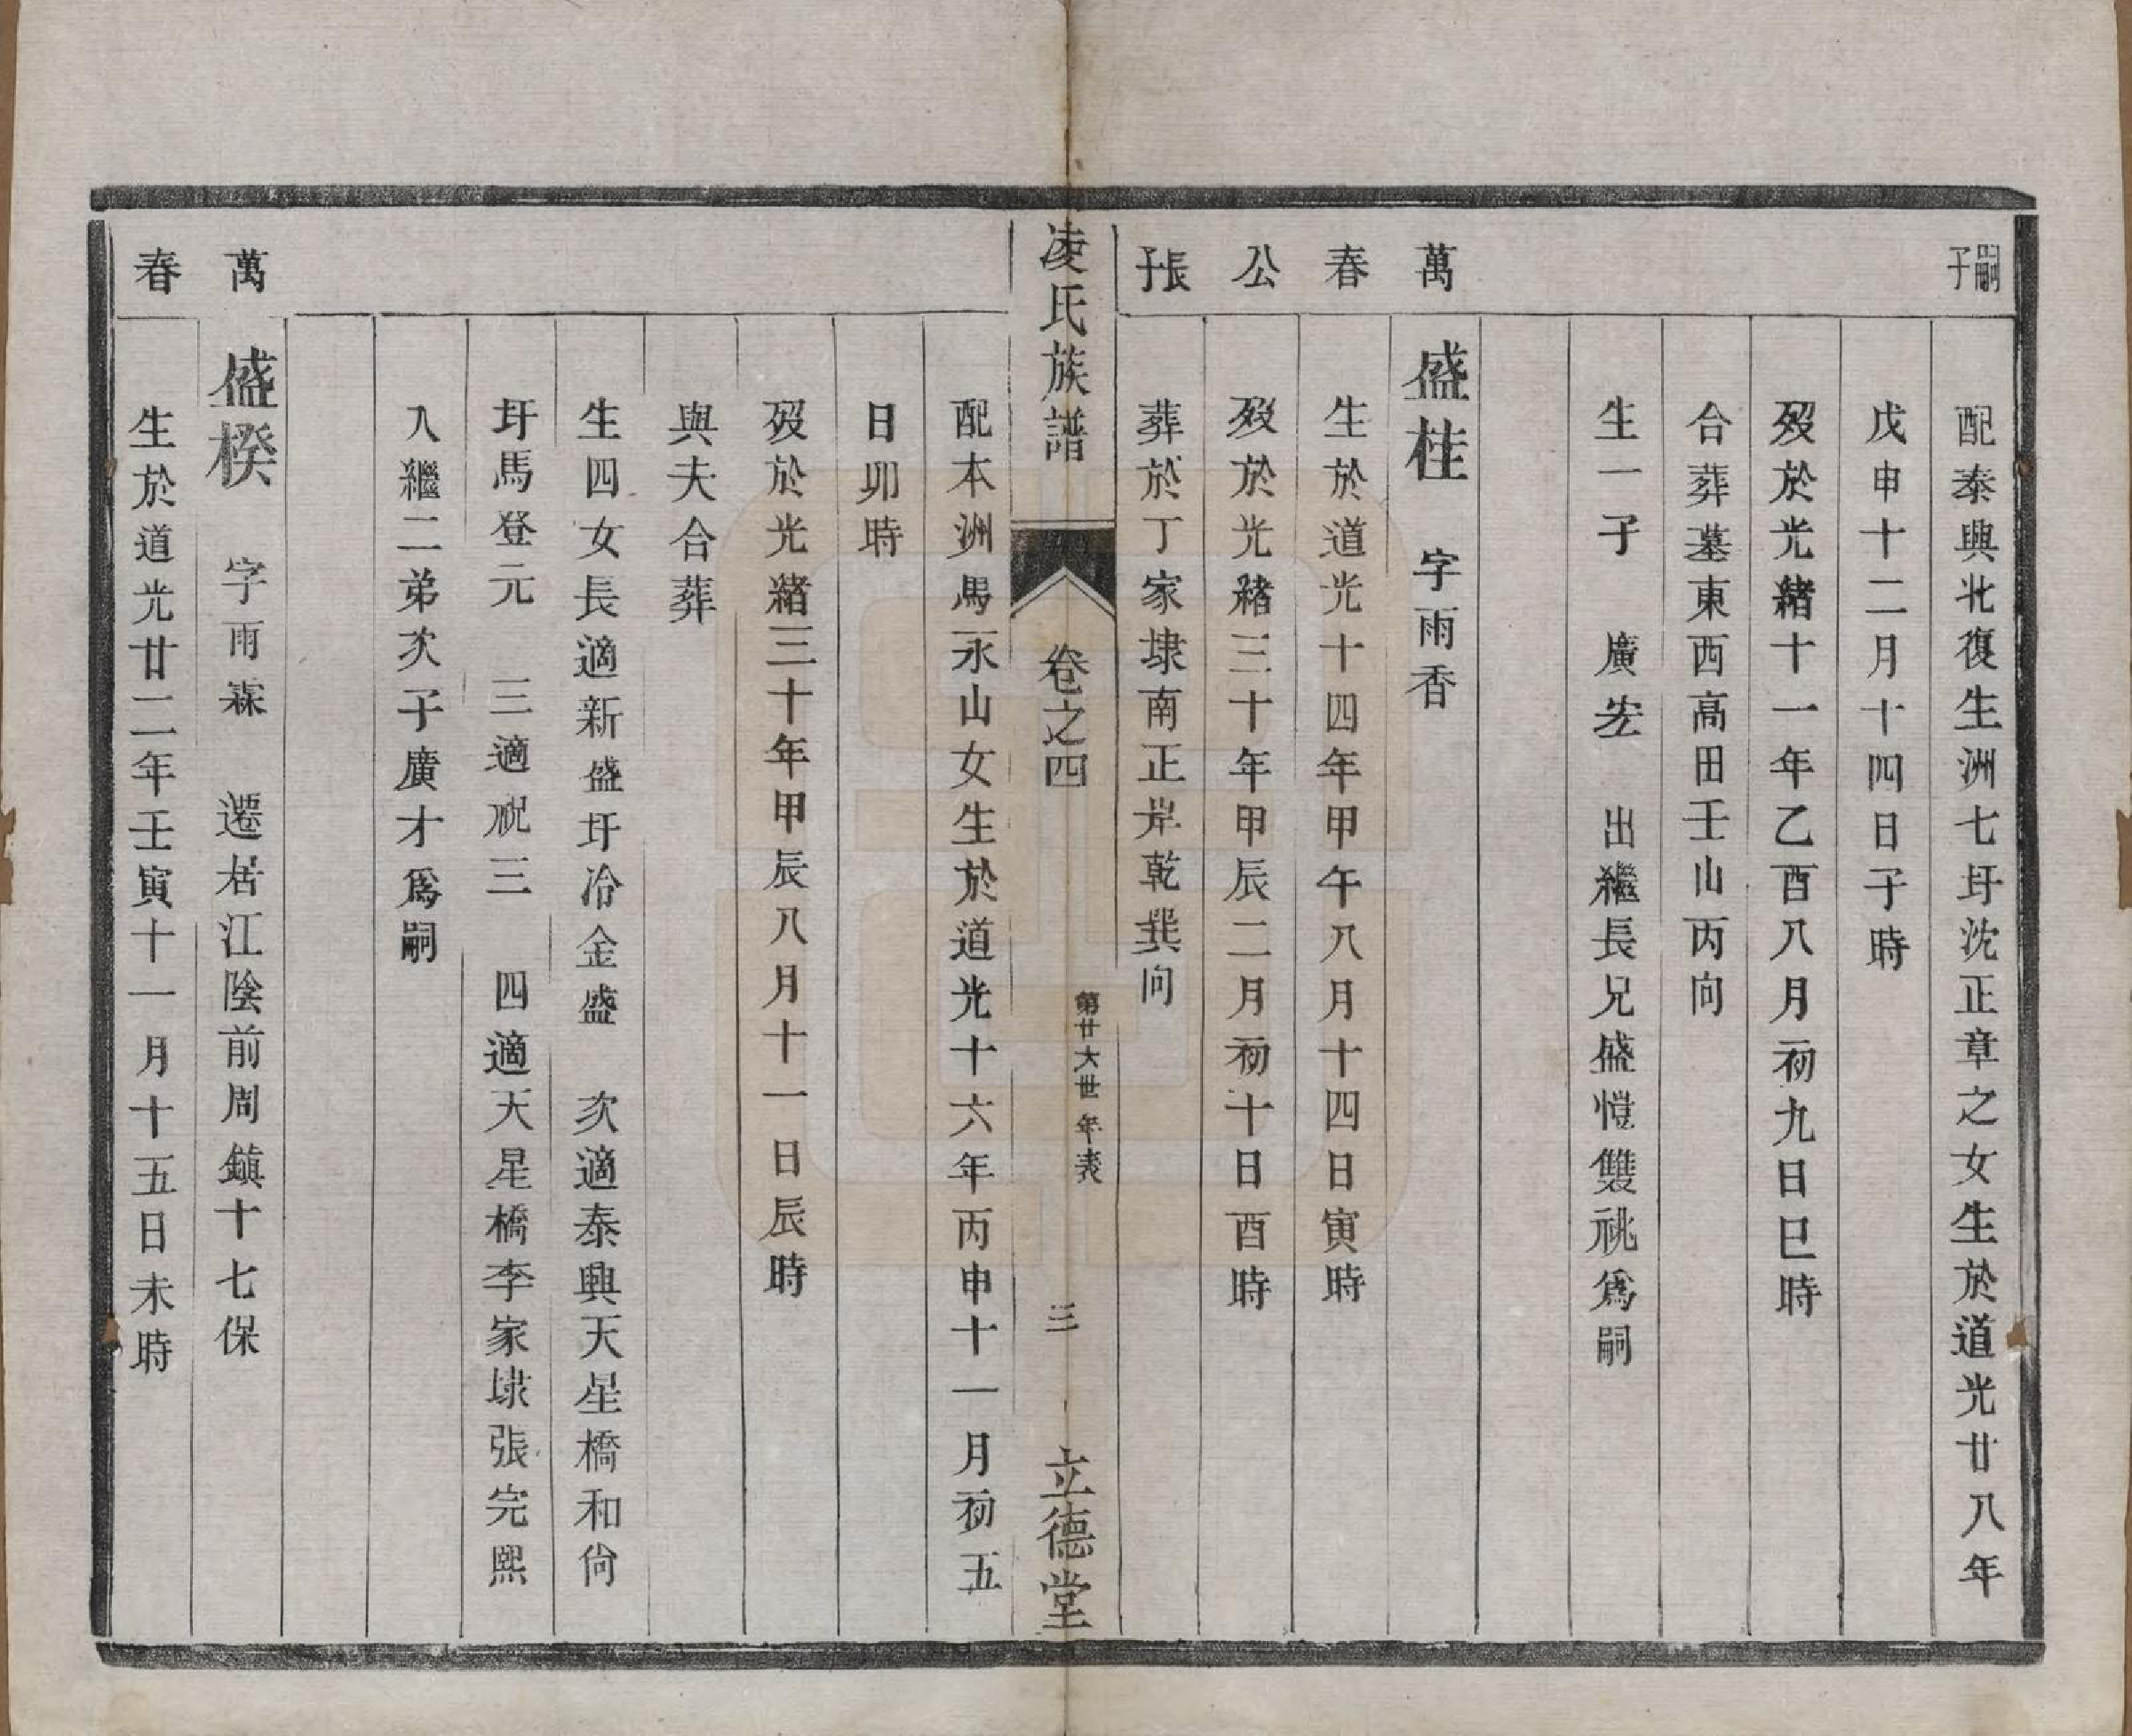 嗣子
配泰興北復生洲七圩沈正章之女生於道光廿八年
戊申十二月十四日子時
歿於光緒十一年乙酉八月初九日巳時
合葬墓東西高田壬山丙向
生一子　廣宏　出繼長兄盛愷雙祧爲嗣
萬春公長子
盛柱　字雨香
生於道光十四年甲午八月十四日寅時
歿於光緒三十年甲辰二月初十日酉時
葬於丁家埭南正岸乾巽向
凌氏族譜　卷之四　第廿六世年表　三　立德堂
配本洲馬永山女生於道光十六年丙申十一月初五
日卯時
歿於光緒三十年甲辰八月十一日辰時
與夫合葬
生四女長適新盛圩冷金盛　次適泰興天星橋和尙
圩馬登元　三適祝三　四適天星橋李家埭張完熙
入繼二弟次子廣才爲嗣
萬春
盛楑　字雨霖　遷居江陰前周鎮十七保
生於道光廿二年壬寅十一月十五日未時